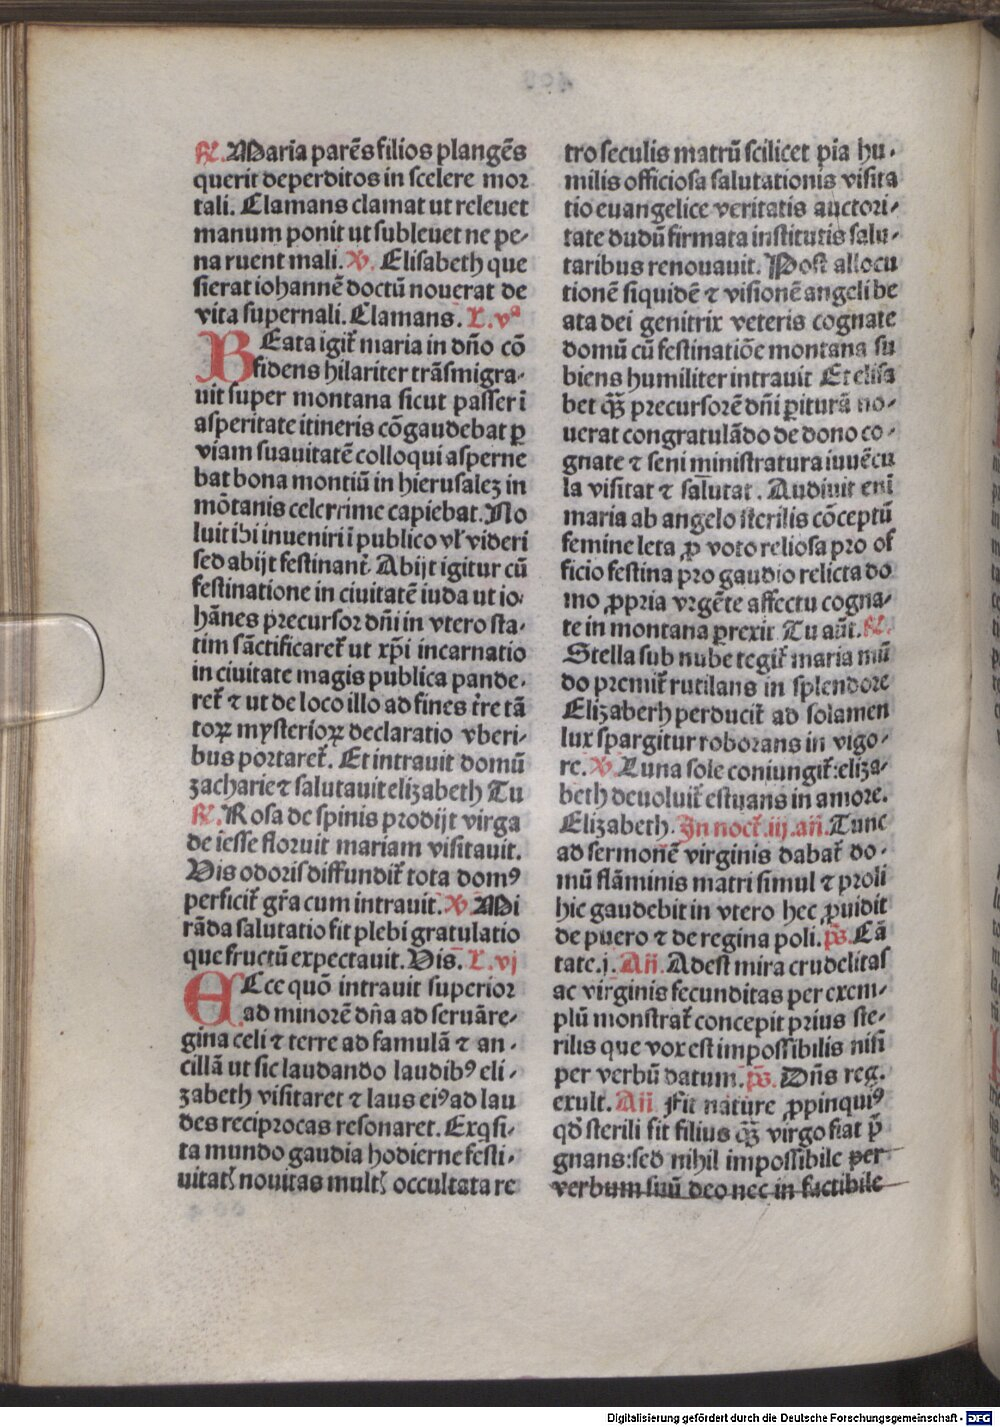 ℟. Maria parēs filios plangēs
querit deperditos in scelere mor
tali. Clamans clamat ut releuet
manum ponit ut subleuet ne pe-
na ruent mali. ℣. Elisabeth que
sierat iohannē doctū nouerat de
vita supernali. Clamans. L. vª
BEata igit̄ maria in dn̄o cō
fidens hilariter trāsmigra-
uit super montana sicut passer ī
asperitate itineris cōgaudebat ꝑ
viam suauitatē colloqui asperne
bat bona montiū in hierusalez in
mōtanis celerrime capiebat. No
luit ibi inueniri ī publico vl̄ videri
sed abijt festinant̄. Abijt igitur cū
festinatione in ciuitatē iuda ut io-
hānes precursor dn̄i in vtero sta-
tim sāctificaret̄ ut xp̄i incarnatio
in ciuitate magis publica pande-
ret̄ ⁊ ut de loco illo ad fines t̄re tā
toꝝ mysterioꝝ declaratio vberi-
bus portaret̄. Et intrauit domū
zacharie ⁊ salutauit elizabeth Tu
℟. Rosa de spinis prodijt virga
de iesse floruit mariam visitauit.
Vis odoris diffundit̄ tota domꝰ
perficit̄ gr̄a cum intrauit. ℣. Mi
rāda salutatio fit plebi gratulatio
que fructū expectauit. Vis. L. vj
ECce quō intrauit superior
ad minorē dn̄a ad seruā re-
gina celi ⁊ terre ad famulā ⁊ an-
cillā ut sic laudando laudibꝰ eli-
zabeth visitaret ⁊ laus eiꝰ ad lau
des reciprocas resonaret. Exqsi-
ta mundo gaudia hodierne festi-
uitatꝭ nouitas multꝭ occultata re
tro seculis matrū scilicet pia hu-
milis officiosa salutationis visita
tio euangelice veritatis auctori-
tate dudū firmata institutis salu-
taribus renouauit. Post allocu
tionē siquidē ⁊ visionē angeli be
ata dei genitrix veteris cognate
domū cū festinatiōe montana su
biens humiliter intrauit Et elisa
bet qꝫ̄ precursorē dn̄i ꝑiturā no-
uerat congratulādo de dono co-
gnate ⁊ seni ministratura iuuēcu
la visitat ⁊ salutat. Audiuit enī
maria ab angelo sterilis cōceptū
femine leta ꝓ voto reliosa pro of
ficio festina pro gaudio relicta do
mo ꝓpria vrgēte affectu cogna-
te in montana ꝑrexit Tu aūt. ℟.
Stella sub nube tegit̄ maria mū
do premit̄ rutilans in splendore
Elizaberh perducit̄ ad solamen
lux spargitur roborans in vigo-
re. ℣. Luna sole coniungit̄: eliza-
beth deuoluit̄ estuans in amore.
Elizabeth. In noct̄. iij. an̄. Tunc
ad sermonē virginis dabat̄ do-
mū flāminis matri simul ⁊ proli
hic gaudebit in vtero hec ꝓuidit
de puero ⁊ de regina poli. p̄s. Cā
tate. j. An̄. Adest mira crudelitas
ac virginis fecunditas per exem-
plū monstrat̄ concepit prius ste-
rilis que vox est impossibilis nisi
per verbū datum. p̄s. Dn̄s reg.
exult. An̄ Fit nature ꝓpinquiꝰ
qđ sterili sit filius qꝫ̄ virgo fiat p̄
gnans: sed nihil impossibile per
verbum suū deo nec in factibile
Digitalisierung gefördert durch die Deutsche Forschungsgemeinschaft - DFG